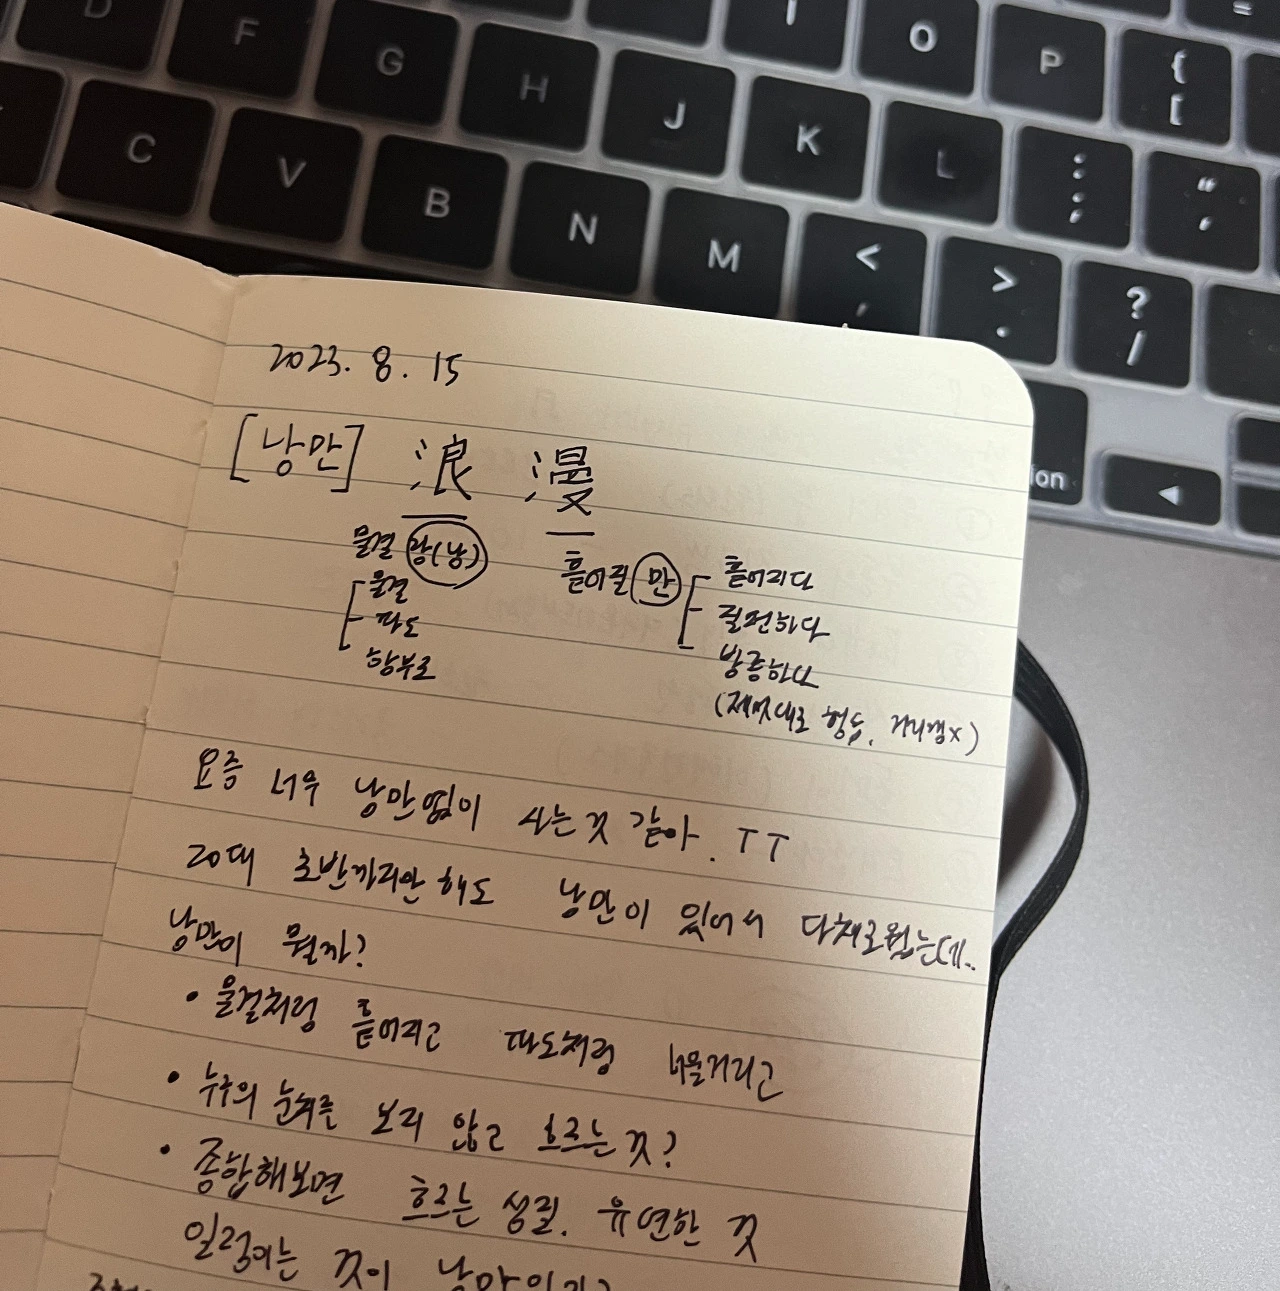 D F G H J K L I O P { [
C V B N M < , > . ? / : ; " ' =
ion ◀
2023. 8. 15
[낭만] 浪 漫
물결 랑(낭) 흩어질 만
물결
파도
함부로
흩어지다
질펀하다
방종하다
(제멋대로 행동, 거리낌x)
요즘 너무 낭만없이 사는것 같아. ㅜㅜ
20대 초반까지만 해도 낭만이 있어서 다채로웠는데..
낭만이 뭘까?
• 물결처럼 흩어지고 파도처럼 너울거리고
• 누구의 눈치를 보지 않고 흐르는 것?
• 종합해보면 흐르는 성질. 유연한 것
일렁이는 것이 낭만인가?